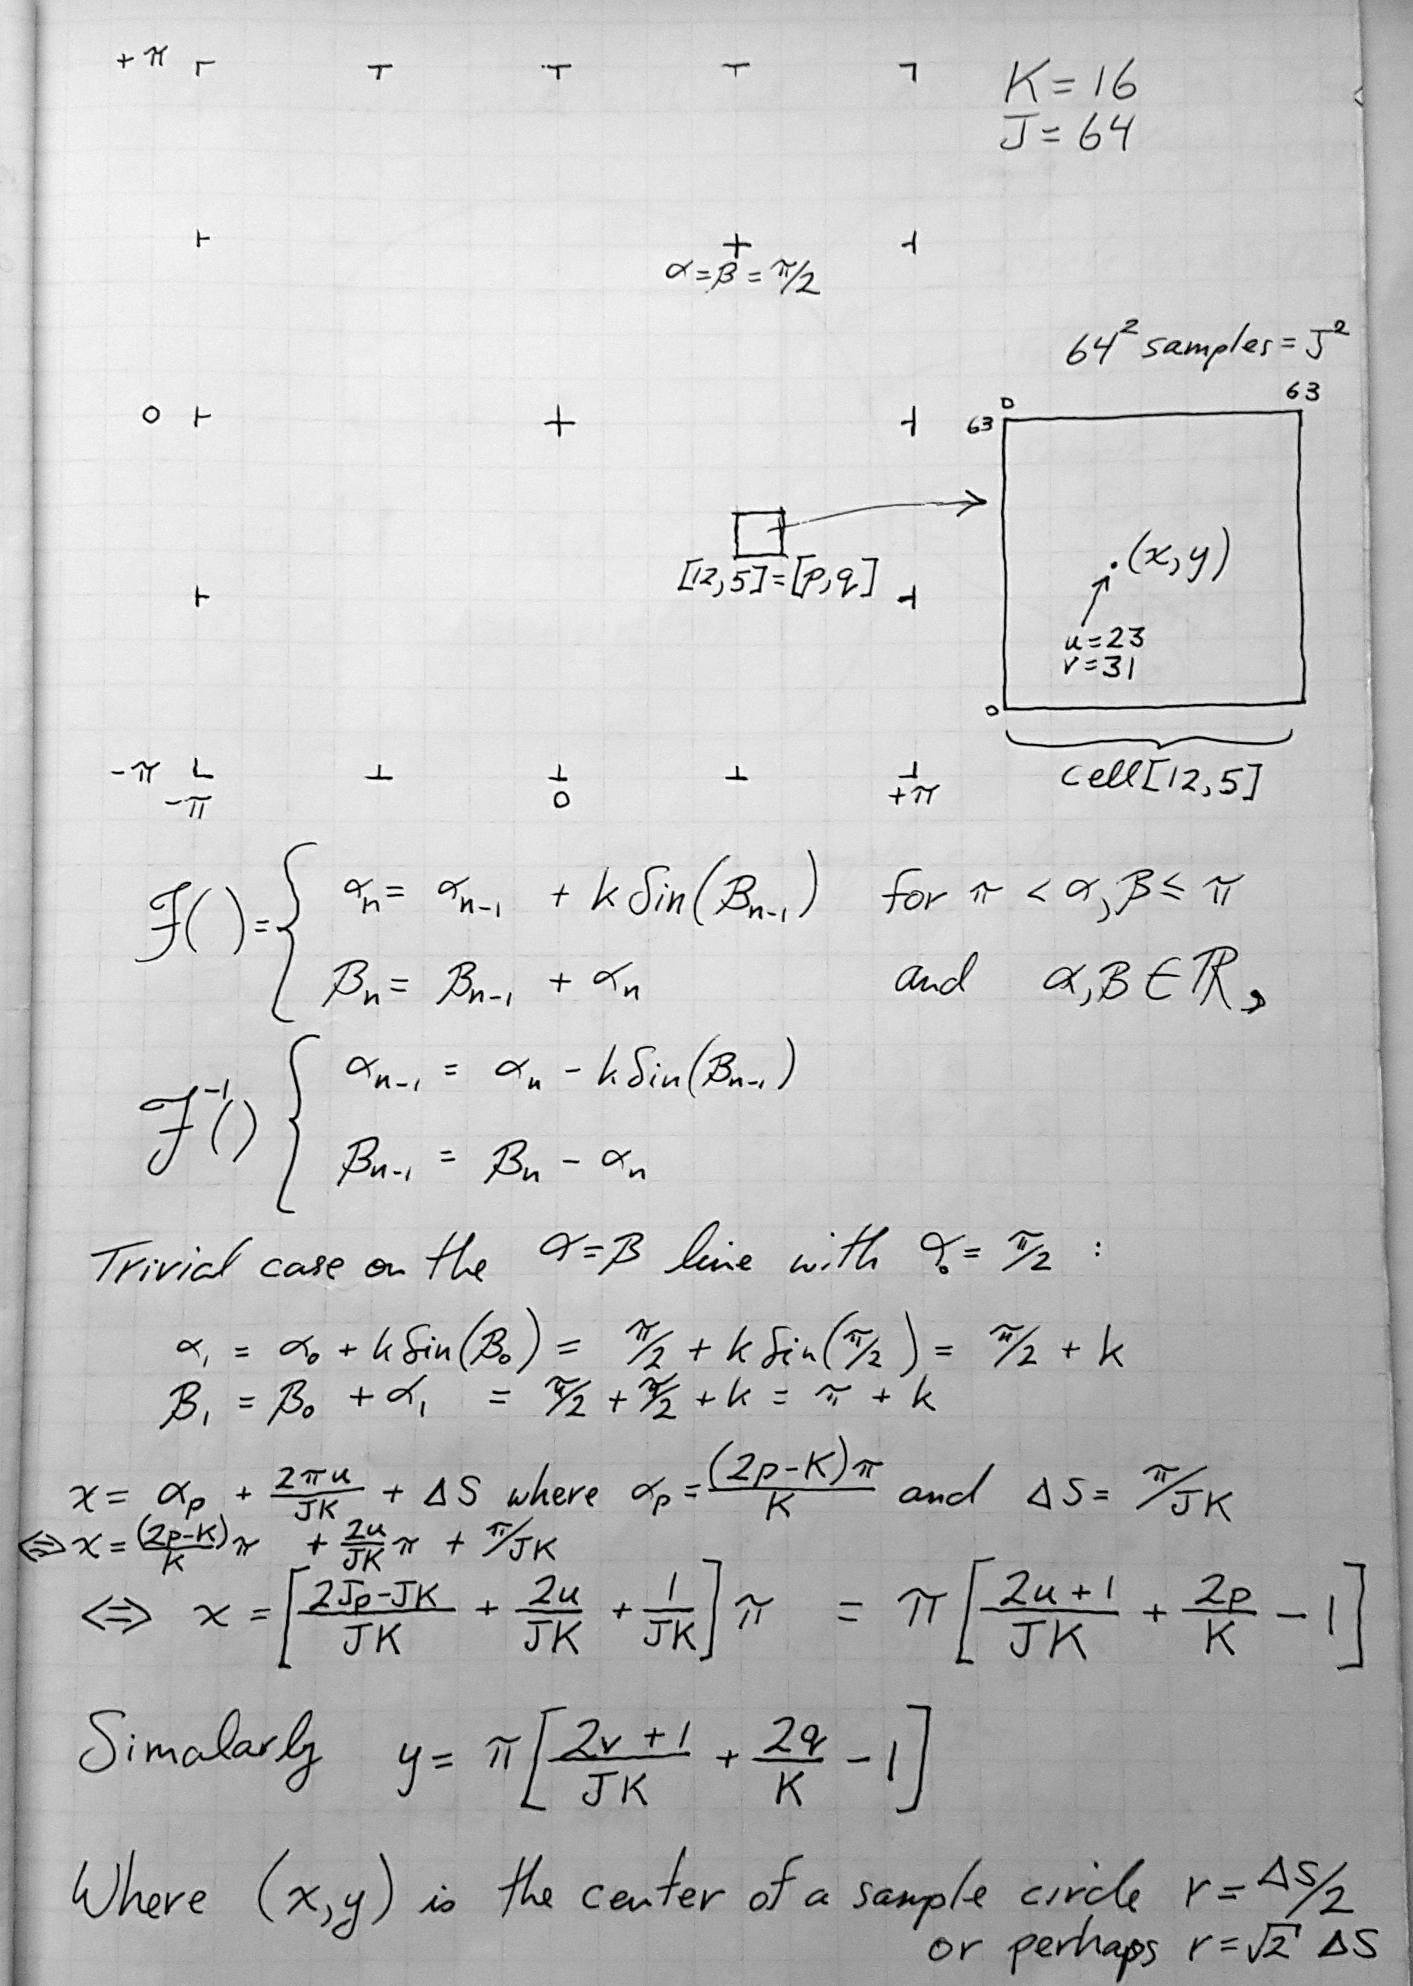 +π
K = 16
J = 64
α = β = π/2
64² samples = J²
0 63
63
0
[12,5] = [p,q]
(x,y)
u = 23
v = 31
0
cell[12,5]
-π
-π 0 +π
F() = { αₙ = αₙ₋₁ + k Sin(βₙ₋₁) for π < α, β ≤ π
βₙ = βₙ₋₁ + αₙ and α, β ∈ ℝ,
F⁻¹() { αₙ₋₁ = αₙ - k Sin(βₙ₋₁)
βₙ₋₁ = βₙ - αₙ
Trivial case on the α = β line with α₀ = π/2 :
α₁ = α₀ + k Sin(β₀) = π/2 + k Sin(π/2) = π/2 + k
β₁ = β₀ + α₁ = π/2 + π/2 + k = π + k
x = αₚ + 2πu/JK + ΔS where αₚ = (2p-K)π/K and ΔS = π/JK
⟺ x = (2p-K)/K π + 2u/JK π + π/JK
⟺ x = [ 2Jp-JK/JK + 2u/JK + 1/JK ] π = π [ 2u+1/JK + 2p/K - 1 ]
Simalarly y = π [ 2v+1/JK + 2q/K - 1 ]
Where (x,y) is the center of a sample circle r = ΔS/2
or perhaps r = √2 ΔS